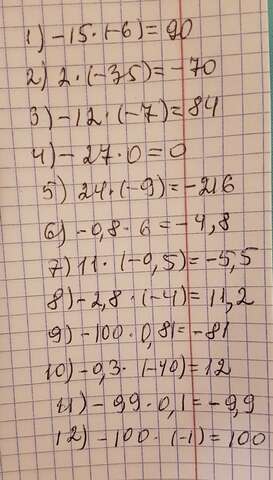 1) -15 · (-6) = 90
2) 2 · (-35) = -70
3) -12 · (-7) = 84
4) - 27 · 0 = 0
5) 24 · (-9) = -216
6) -0,8 · 6 = -4,8
7) 11 · (-0,5) = -5,5
8) -2,8 · (-4) = 11,2
9) -100 · 0,81 = -81
10) -0,3 · (-40) = 12
11) - 99 · 0,1 = -9,9
12) -100 · (-1) = 100